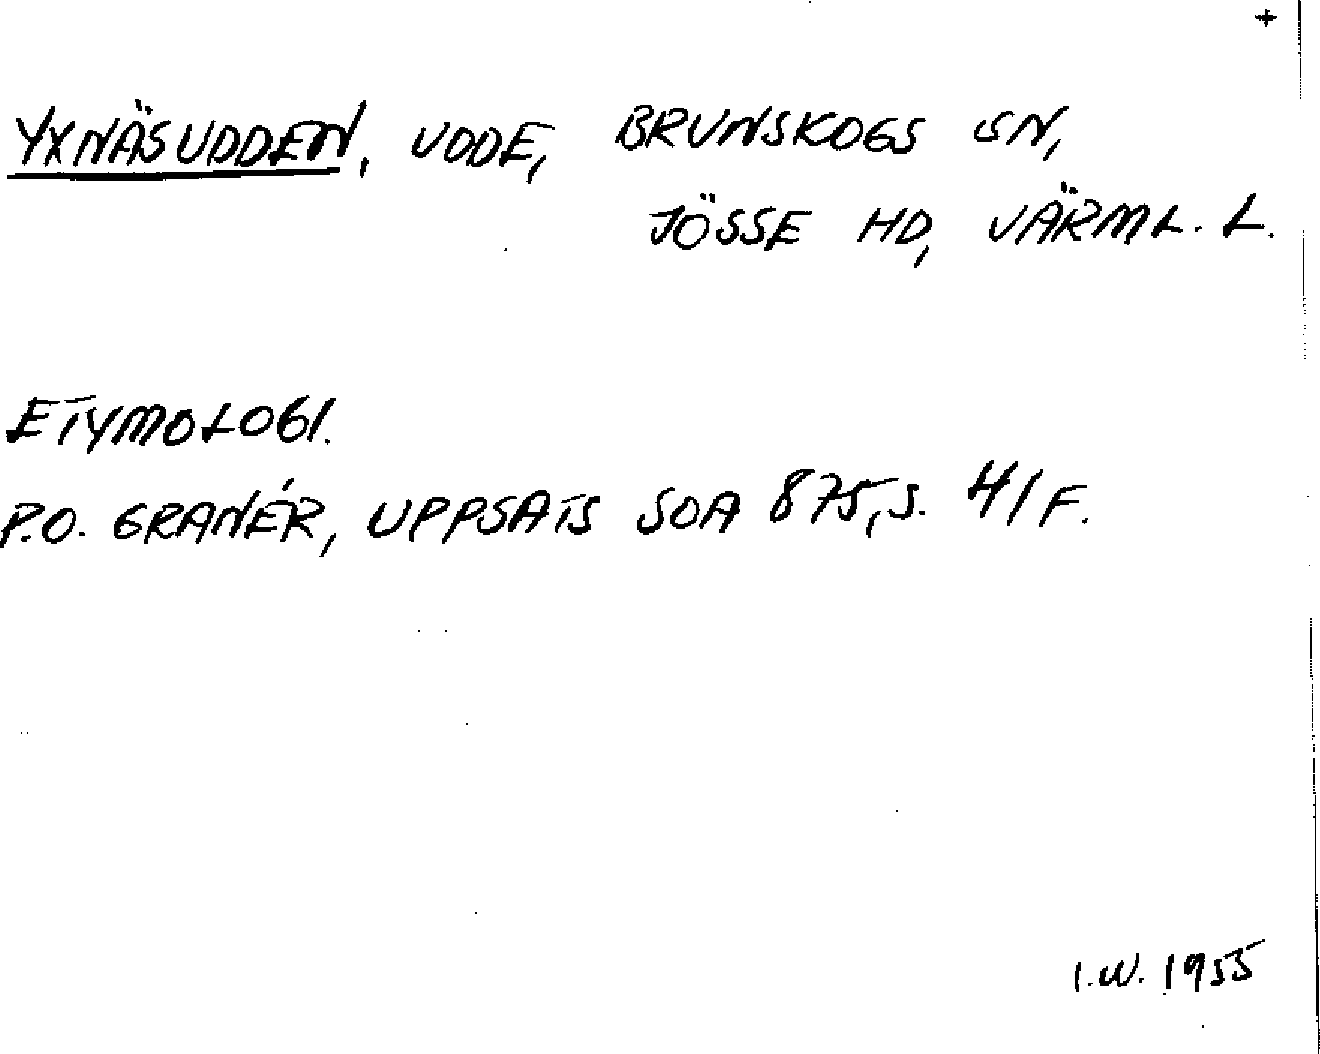 +
YXNÄSUDDEN, UDDE, BRUNSKOGS SN,
JÖSSE HD, VÄRML. L.
ETYMOLOGI.
P.O. GRANÉR, UPPSATS SOA 875, S. 41 F.
I.W. 1955